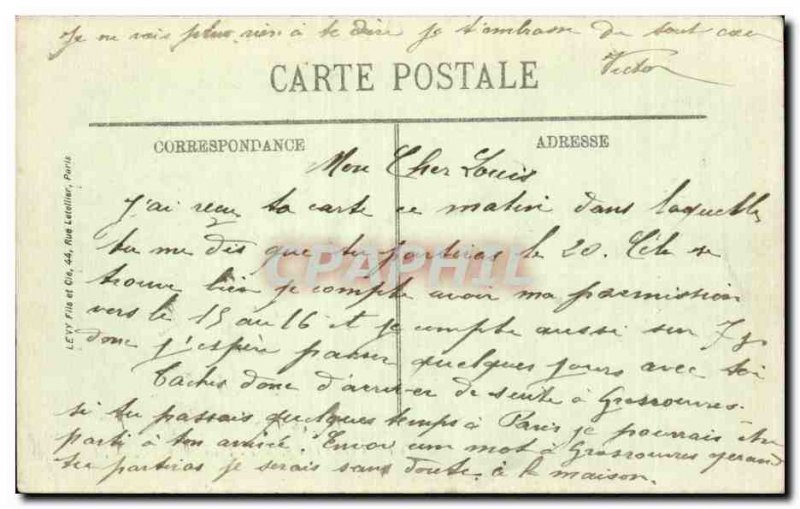 Je ne vois plus rien à te dire je t'embrasse de tout cœur
Victor
CARTE POSTALE
CORRESPONDANCE
ADRESSE
LEVY Fils et Cie, 44, Rue Letellier, Paris
Mon Cher Louis
J'ai reçu ta carte ce matin dans laquelle
tu me dis que tu partiras le 20. Cela se
trouve bien je compte avoir ma permission
vers le 15 au 16 et je compte aussi sur 7 j.
donc j'espère passer quelques jours avec toi
Taches donc d'arriver de suite à Grossouvres.
si tu passais quelques temps à Paris je pourrais être
parti à ton arrivée. Envoi un mot à Grossouvres quand
tu partiras je serais sans doute à la maison.
CPAPHIL